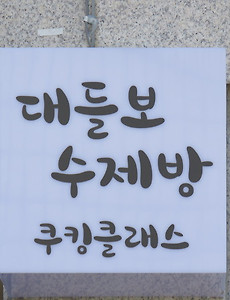 대들보
수제방
쿠킹클래스